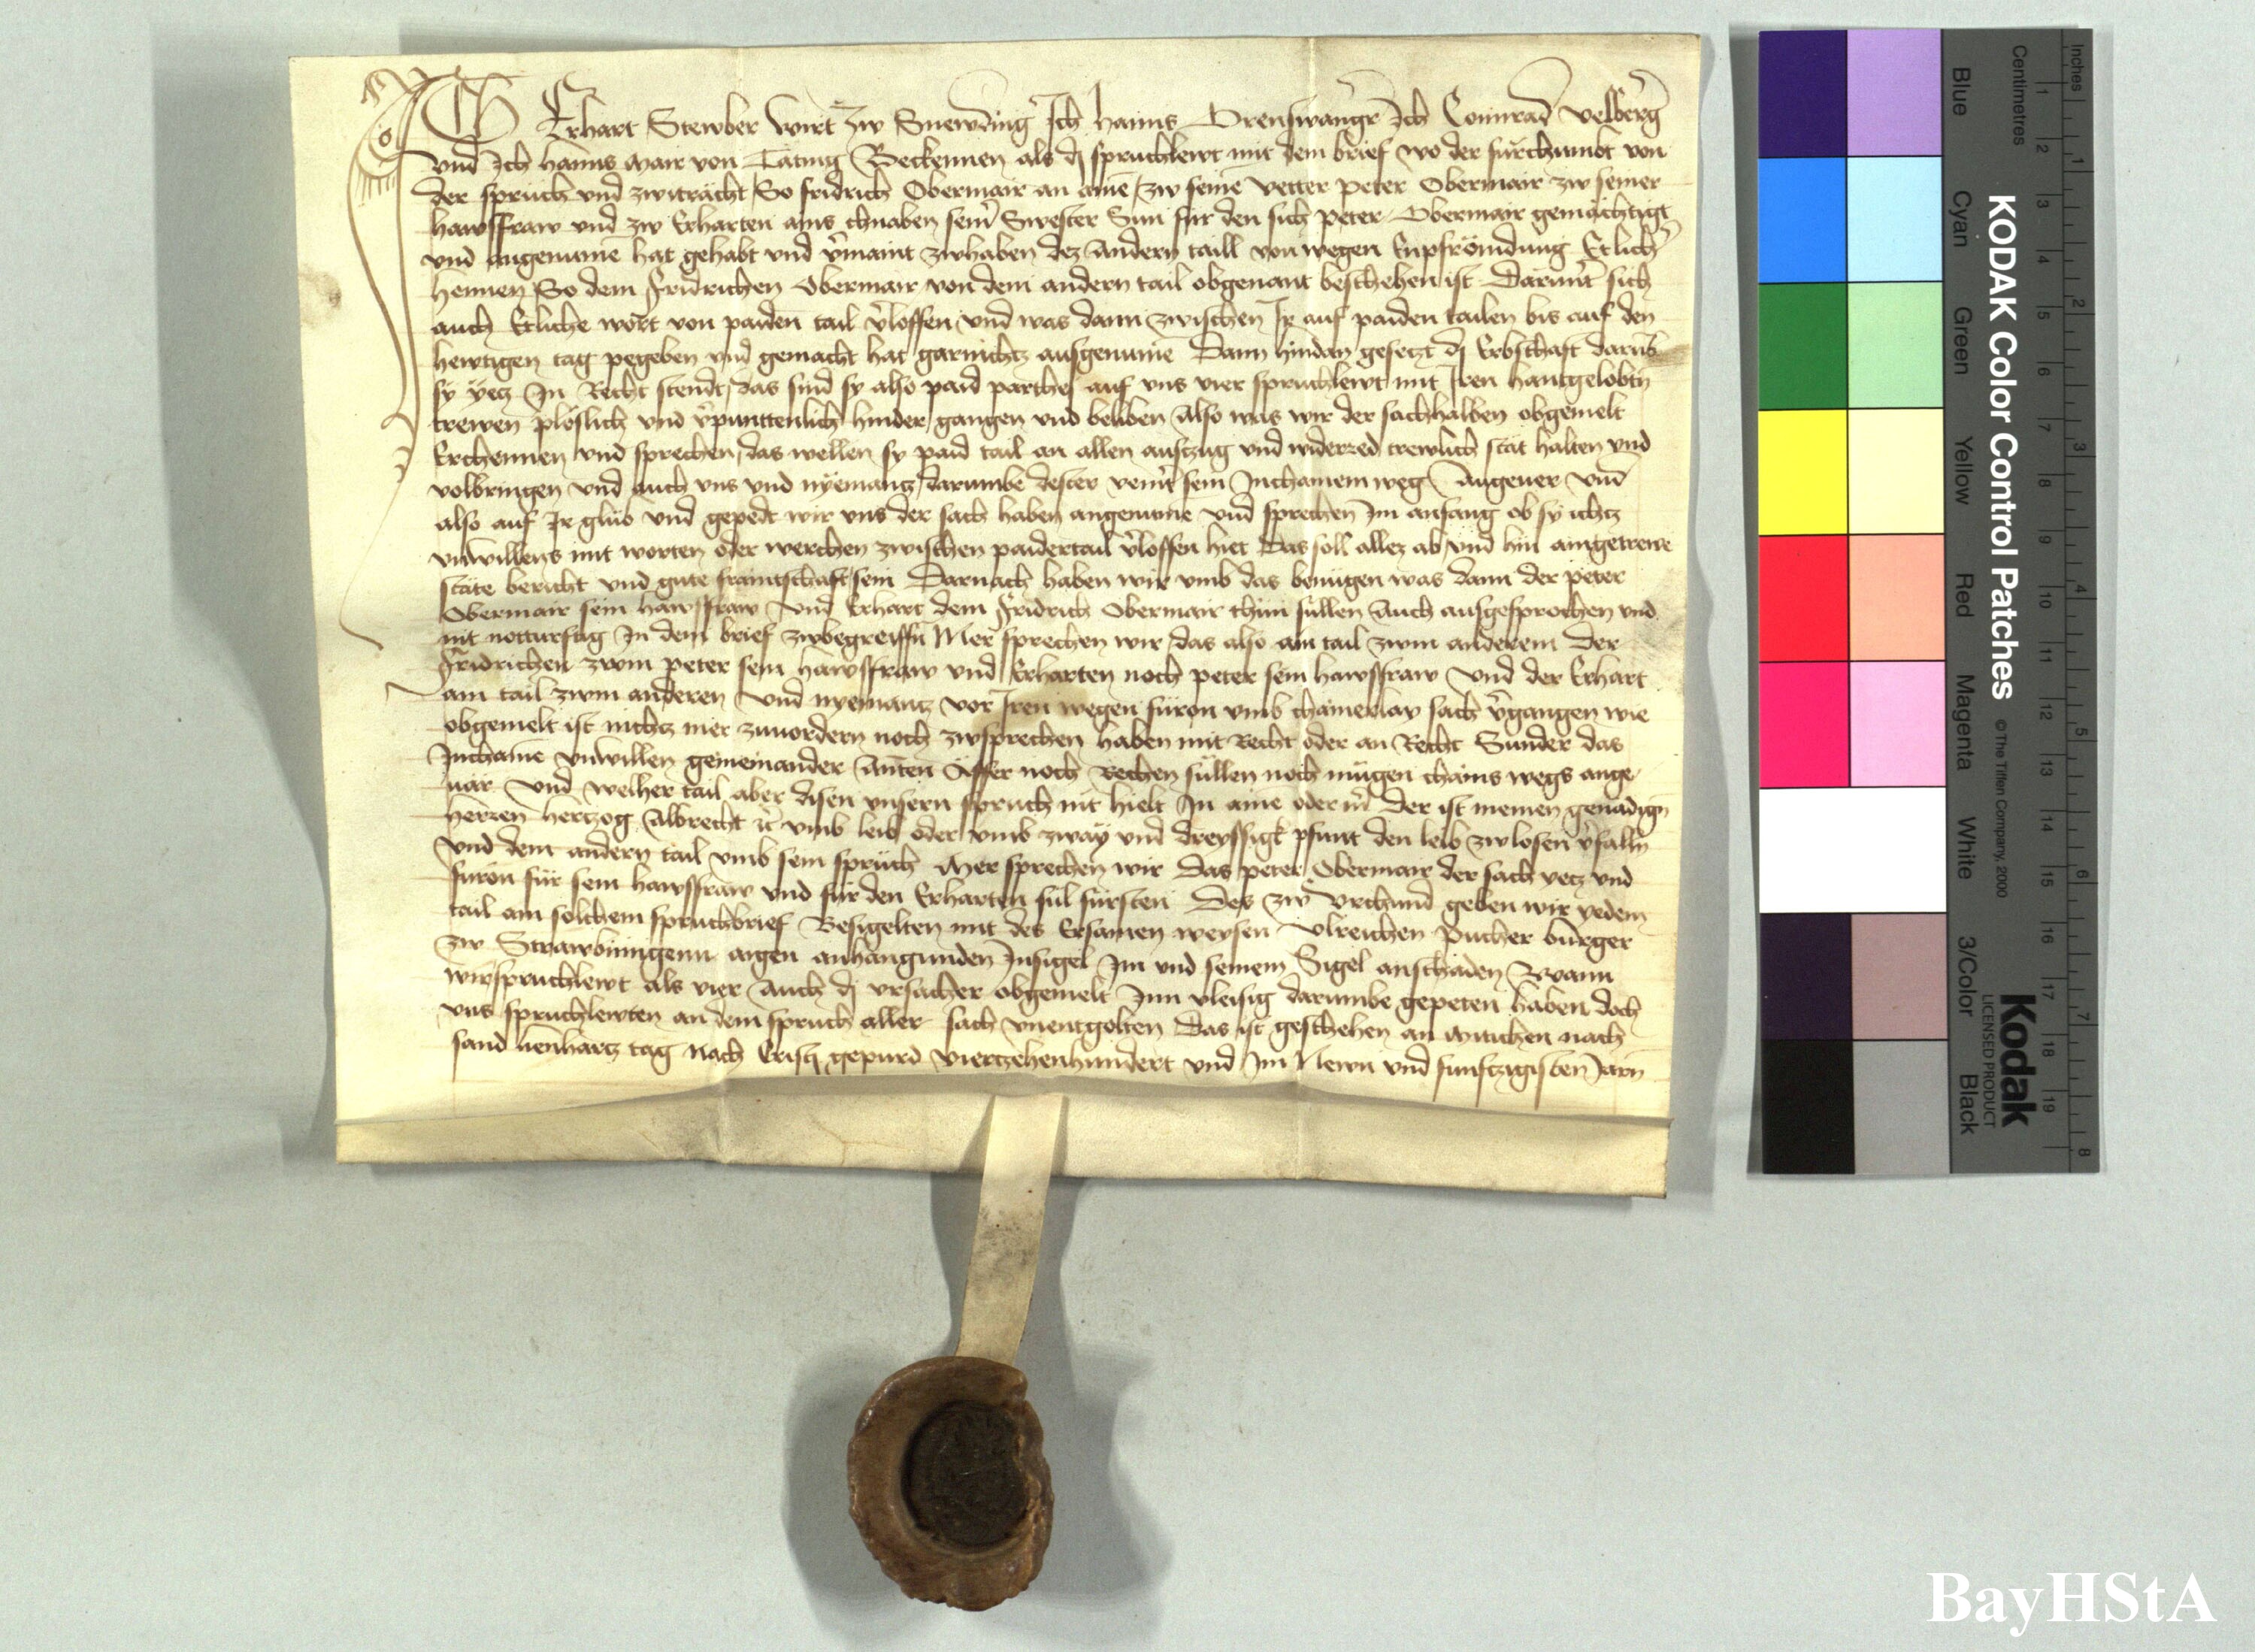 Ich Erhart Stewber wirt zw Snewding Ich Hanns Drenswangr̄ Ich Connrad velberḡ
vnd Ich hanns Mair von Täting Bekennen als dj spruchlewt mit dem brief wo der fürchumbt von
der spruch vnd zwiträcht So fridrich Obermair an aine zw seine vetter peter Obermair zw seiner
hawsfraw vnd zw Erharten ains chnaben seinr̄ Swester Sun für den sich peter Obermair gemächtigt
vnd angenume hat gehabt vnd v̄maint zwhaben dez andern taill von wegen Enpfrömdung Etlich̄
hennen So dem Fridrichen Obermair von dem andern tail obgenant beschehen ist Darunt̄ sich
auch Etliche wort von paiden tail v̄loffen vnd was dann zwischen Ir auf paiden tailen bis auf den
hewtigen tag pegeben vnd gemacht hat garnichtz ausgenume Dann hindan gesetzt dj Erbschaft darub̄
sy yetz In Recht stendt das sind sy also paid parthej auf vns vier spruchlewt mit Iren hantgelobtn̄
trewen plöslich vnd v̄punttenlich hinder gangen vnd beliben Also was wir der sachhalben obgemelt
Erchennen vnd sprechen das wellen sy paid tail an allen auszug vnd widerred trewlich stät halten vnd
volbringen vnd auch vns vnd nyemantz darumbe dester veinr̄ sein Inchainem weg Angeuer Vnd
also auf Ir glüb vnd gepedt wir vns der sach haben angenume vnd sprechen Im anfang ob sy ichtz
vnwillens mit worten oder werchen zwischen paidertail v̄loffen hiet Das soll allez ab vnd hin aingetrewe
stäte bericht vnd gute fraintschaft sein Darnach haben wir vmb das benügen was dann der peter
Obermair sein hawsfraw vnd Erhart dem Fridrich Obermair thün süllen Auch ausgesprochen vnd
nit notturftig In dem brief zwbegreiffn̄ Mer sprechen wir das also ain tail zwm anderem Der
Fridrichen zwm peter sein hawsfraw vnd Erharten noch peter sein hawsfraw vnd der Erhart
ain tail zwm anderen Vnd nyemantz vor Iren wegen füron vmb chainerlay sach v̄gangen wie
obgemelt ist nichtz mer zuuordern noch zwsprechen haben mit Recht oder an Recht Sunder das
Inchaine vnwillen gemeinander Anten Äffer noch Rechen süllen noch mügen chains wegs ange
uar Vnd welher tail aber disen vnsern spruch nit hielt In aine oder mr̄ Der ist meinen genadign̄
herren hertzog Albrecht ꝛc vmb leib oder vmb zway vnd dreyssigk pfunt den leib zwlosen v̄falln̄
vnd dem andern tail vmb sein sprüch Mer sprechen wir Das peter Obermair der sach yetz vnd
füron für sein hawsfraw vnd für den Erharten sül fürsten Des zw vrchund geben wir yedem
tail ain solchem spruchbrief Besigelten mit des Ersamen weysen Vlreichen Pucher burger
zw Strawbinngenn aigen anhangunden Insigel Im vnd seinem Sigel anschaden Wann
wir spruchlewt als vier Auch dj vrsacher obgemelt Inn vleisig darumbe gepeten haben doch
vns spruchlewten an dem spruch aller sach vnentgolten Das ist geschehen an mitichen nach
sand lienhartz tag Nach Cristj gepurd Viertzehenhundert vnd Im Newn vnd funftzigisten Jarn̄
Inches
Centimetres
1 2 3 4 5 6 7 8
1 2 3 4 5 6 7 8 9 10 11 12 13 14 15 16 17 18 19
Blue Cyan Green Yellow Red Magenta White 3/Color Black
KODAK Color Control Patches © The Tiffen Company, 2000
Kodak
LICENSED PRODUCT
BayHStA